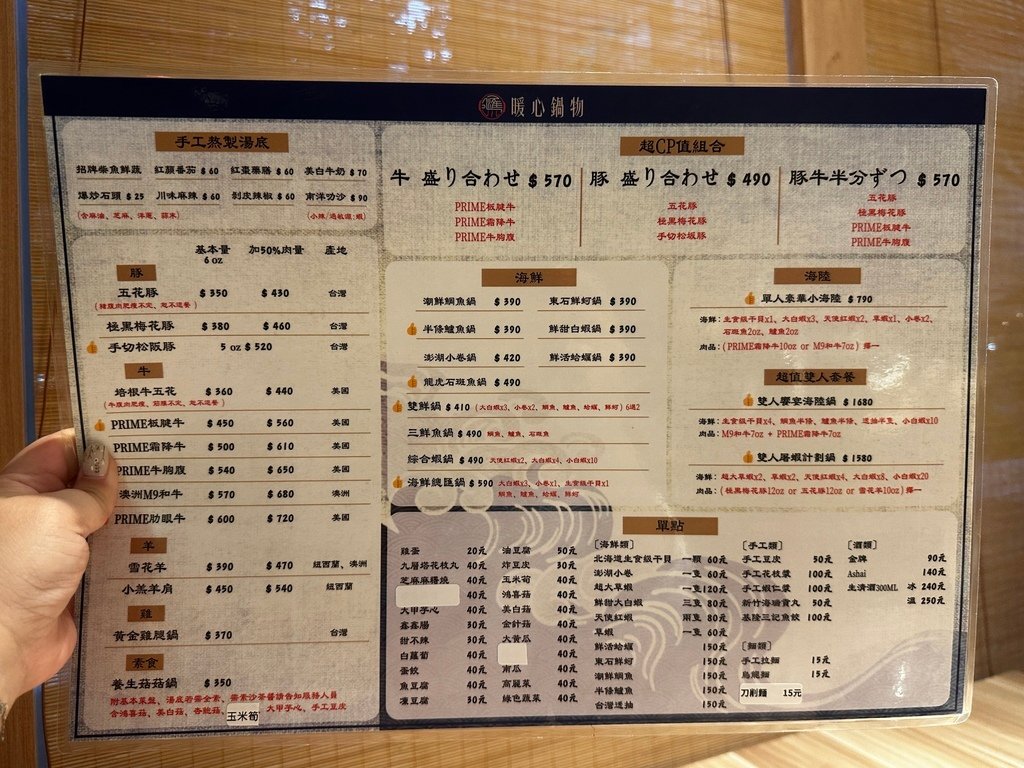 暖心鍋物
手工熬製湯底
招牌柴魚鮮蔬 紅顏番茄 $60 紅棗藥膳 $60 美白牛奶 $70
爆炒石頭 $25 川味麻辣 $60 剝皮辣椒 $60 南洋叻沙 $90
(含麻油、芝麻、洋蔥、蒜末) (小辣/過敏源:蝦)
基本量 加50%肉量 產地
6 oz
豚
五花豚 $350 $430 台灣
(豬腹肉肥瘦不定、恕不退餐)
極黑梅花豚 $380 $460 台灣
手切松阪豚 5 oz $520 台灣
牛
培根牛五花 $360 $440 美國
(牛腹肉肥瘦、筋膜不定、恕不退餐)
PRIME板腱牛 $450 $560 美國
PRIME霜降牛 $500 $610 美國
PRIME牛胸腹 $540 $650 美國
澳洲M9和牛 $570 $680 澳洲
PRIME肋眼牛 $600 $720 美國
羊
雪花羊 $390 $470 紐西蘭、澳洲
小羔羊肩 $450 $540 紐西蘭
雞
黃金雞腿鍋 $370 台灣
素食
養生菇菇鍋 $350
附基本菜盤、湯底若需全素、需素沙茶醬請告知服務人員
含鴻喜菇、美白菇、杏鮑菇、玉米筍 大甲芋心、手工豆皮
超CP值組合
牛 盛り合わせ $570
PRIME板腱牛
PRIME霜降牛
PRIME牛胸腹
豚 盛り合わせ $490
五花豚
極黑梅花豚
手切松坂豚
豚牛半分ずつ $570
五花豚
極黑梅花豚
PRIME板腱牛
PRIME牛胸腹
海鮮
潮鮮鯛魚鍋 $390 東石鮮蚵鍋 $390
半條鱸魚鍋 $390 鮮甜白蝦鍋 $390
澎湖小卷鍋 $420 鮮活蛤蠣鍋 $390
龍虎石斑魚鍋 $490
雙鮮鍋 $410 (大白蝦x3、小卷x2、鯛魚、鱸魚、蛤蠣、鮮蚵) 6選2
三鮮魚鍋 $490 鯛魚、鱸魚、石斑魚
綜合蝦鍋 $490 天使紅蝦x2、大白蝦x4、小白蝦x10
海鮮總匯鍋 $590 大白蝦x3、小卷x1、生食級干貝x1
鯛魚、鱸魚、蛤蠣、鮮蚵
海陸
單人豪華小海陸 $790
海鮮:生食級干貝x1、大白蝦x3、天使紅蝦x2、草蝦x1、小卷x2、
石斑魚2oz、鱸魚2oz
肉品:(PRIME霜降牛10oz or M9和牛7oz) 擇一
超值雙人套餐
雙人饗宴海陸鍋 $1680
海鮮:生食級干貝x4、鯛魚半條、鱸魚半條、透抽半隻、小白蝦x10
肉品:M9和牛7oz + PRIME霜降牛7oz
雙人屠蝦計劃鍋 $1580
海鮮:超大草蝦x2、草蝦x2、天使紅蝦x4、大白蝦x8、小白蝦x20
肉品:(極黑梅花豚12oz or 五花豚12oz or 雪花羊10oz) 擇一
單點
雞蛋 20元
九層塔花枝丸 40元
芝麻麻糬燒 40元
40元
大甲芋心 40元
鑫鑫腸 30元
甜不辣 30元
白蘿蔔 40元
蛋餃 40元
魚豆腐 40元
凍豆腐 30元
油豆腐 50元
炸豆皮 30元
玉米筍 40元
鴻喜菇 40元
美白菇 40元
金針菇 40元
大黃瓜 40元
40元
南瓜 40元
高麗菜 40元
綠色蔬菜 40元
〔海鮮類〕
北海道生食級干貝 一顆 60元
澎湖小卷 一隻 60元
超大草蝦 一隻120元
鮮甜大白蝦 三隻 80元
天使紅蝦 兩隻 80元
草蝦 一隻 60元
鮮活蛤蠣 150元
東石鮮蚵 150元
潮鮮鯛魚 150元
半條鱸魚 150元
台灣透抽 150元
〔手工類〕
手工豆皮 50元
手工花枝漿 100元
手工蝦仁漿 100元
新竹海瑞貢丸 50元
基隆三記魚餃 100元
〔麵類〕
手工拉麵 15元
烏龍麵 15元
刀削麵 15元
〔酒類〕
金牌 90元
Ashai 140元
生清酒300ML 冰 240元
溫 250元